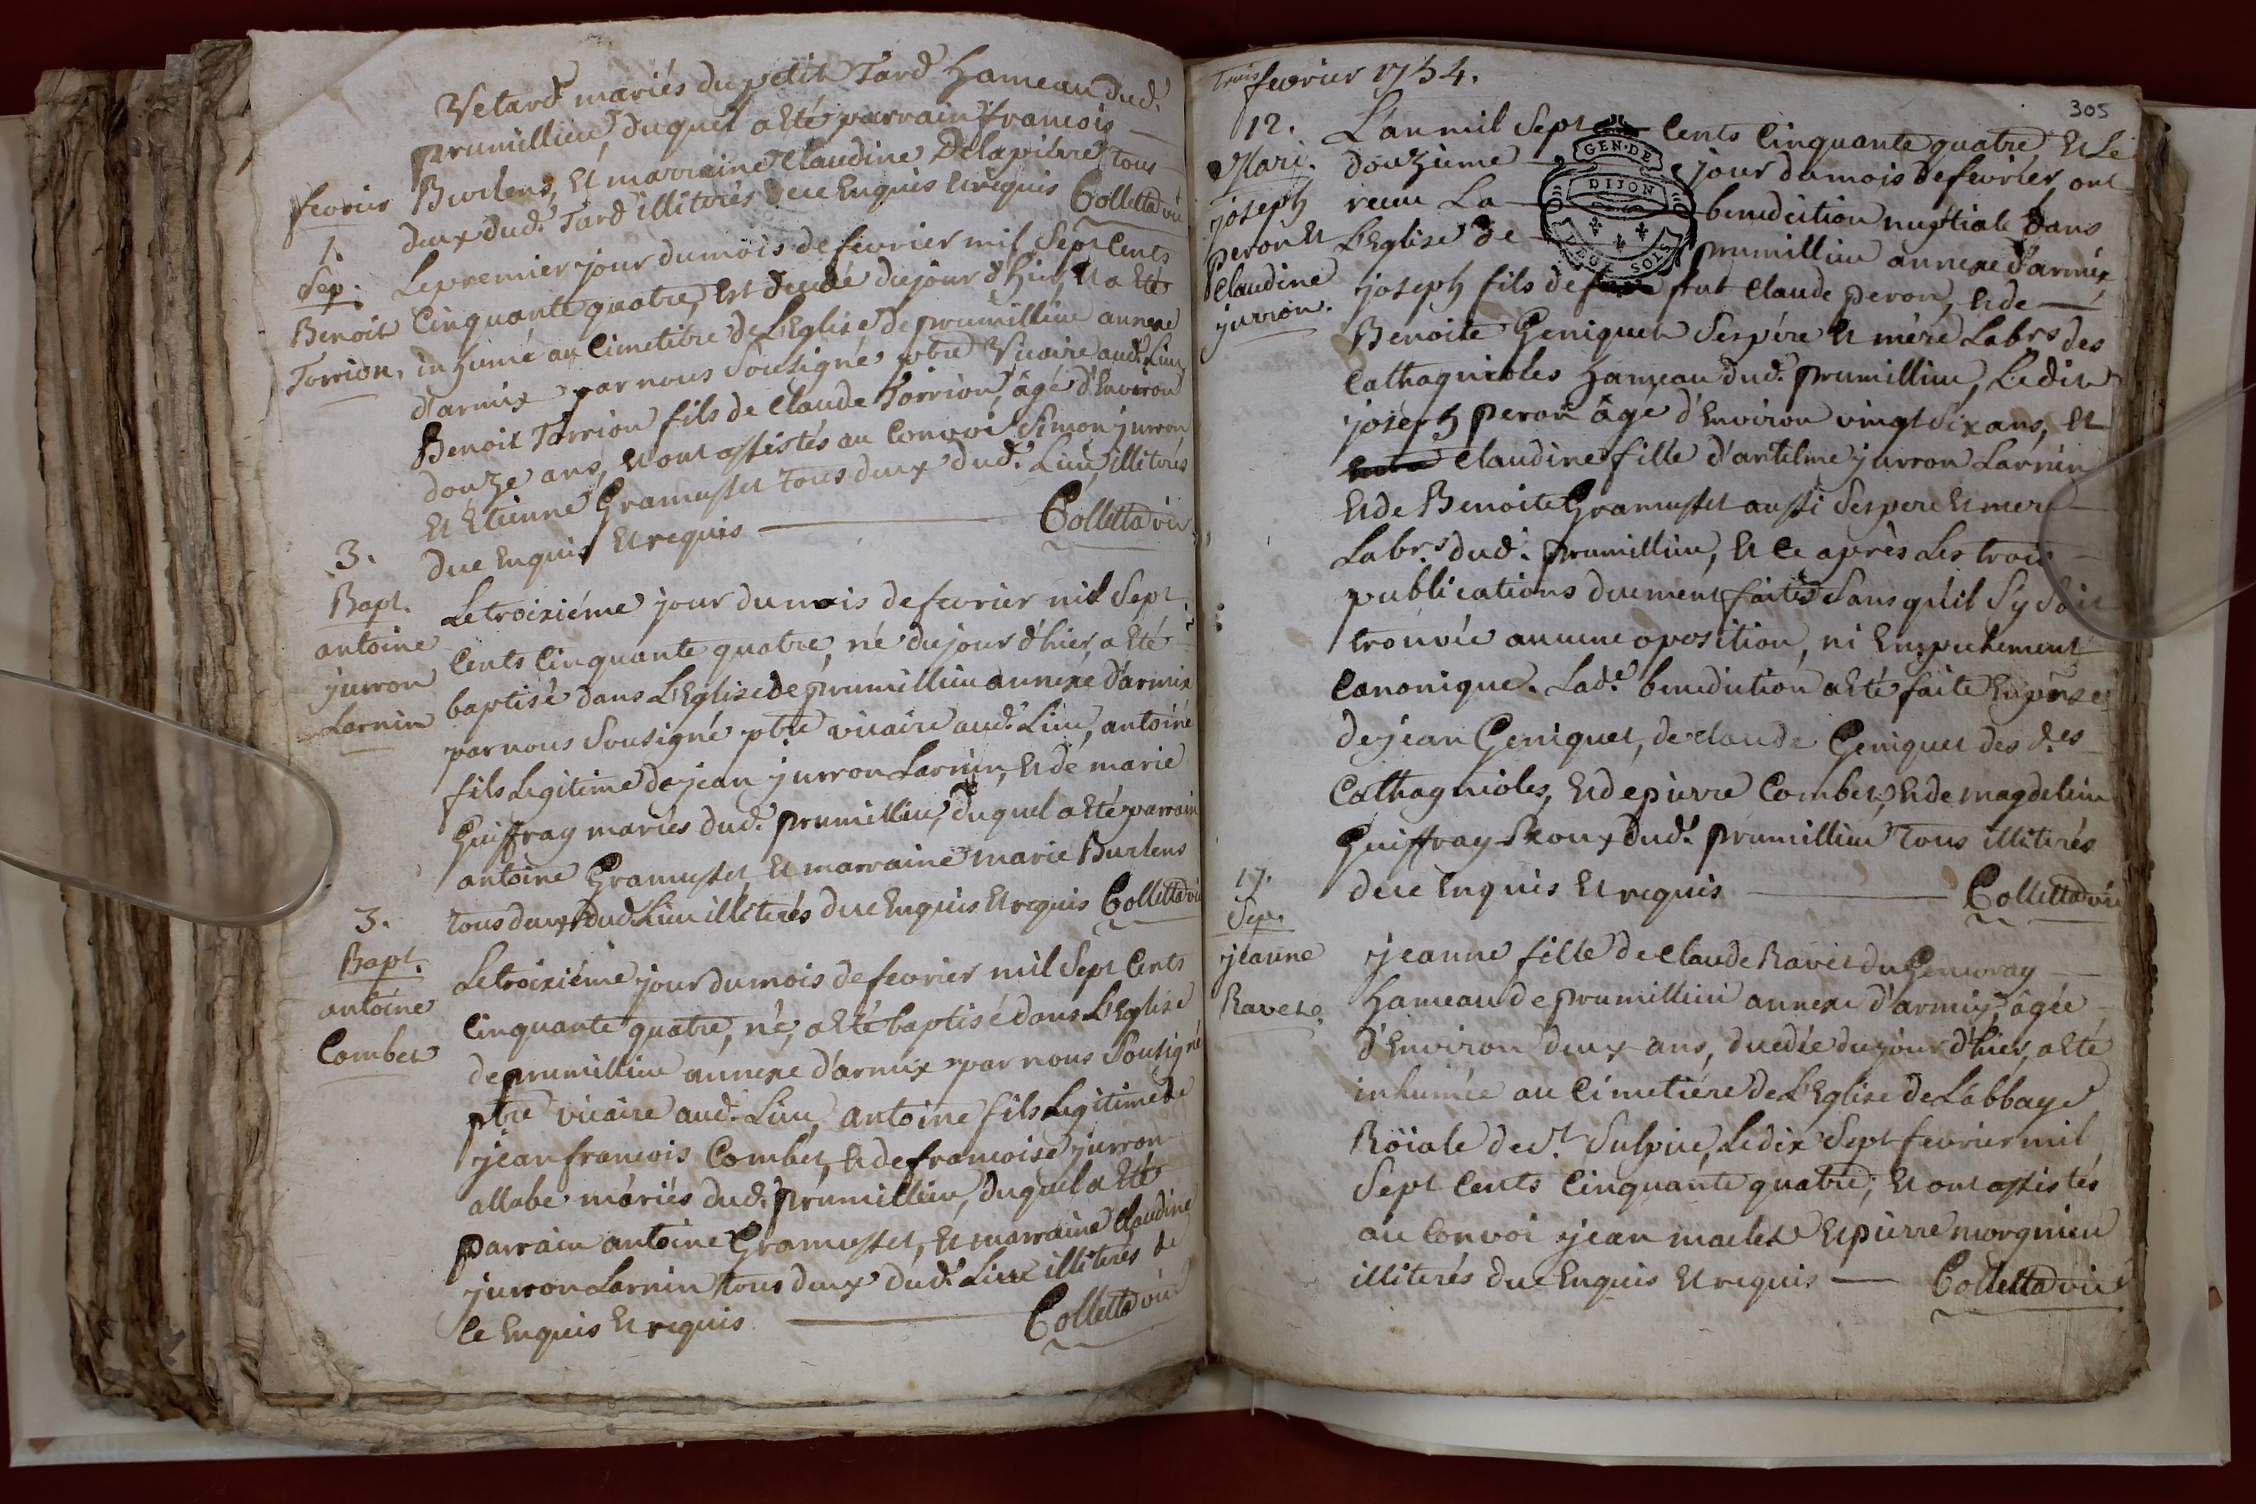 Vetard mariés du petit Tard hameau dud.
prumillieu, duquel a été parrain francois
Burlens, Et marraine Claudine Delapierre tous
deux dud. Tard illiterés de ce Enquis Et requis Colletta vic
fevrier
1.
Sep.
Benoit
Torrion.
Le premier jour du mois de fevrier mil Sept Cents
Cinquante quatre, Est decedé du jour d'hier, Et a Eté
inhumé au Cimetière de L'Eglise de prumillieu annexe
d'armix par nous Sousigné ptre Vicaire aud. Lieu
Benoit Torrion fils de Claude Torrion, âgé d'Environ
douze ans, Et ont assistés au Convoi Simon jurron
Et Etienne Gramusset tous deux dud. Lieu, illiterés
de ce Enquis Et requis Colletta vic.
3.
Bapt.
antoine
jurron
Larnin
Le troiziéme jour du mois de fevrier mil Sept
Cents Cinquante quatre, né du jour d'hier, a Eté
baptisé dans L'Eglise de prumillieu annexe d'armix
par nous Sousigné ptre vicaire aud. Lieu, antoine
fils Legitime de jean jurron Larnin, Et de marie
Guiffray mariés dud. prumillieu, duquel a Eté parrain
antoine Gramusset Et marraine marie Burlens
tous deux dud. Lieu illiterés de ce Enquis Et requis Colletta vic
3.
Bapt.
antoine
Combet
Le troiziéme jour du mois de fevrier mil Sept Cents
Cinquante quatre, né, a Eté baptisé dans L'Eglise
de prumillieu annexe d'armix par nous Sousigné
ptre vicaire aud. Lieu, antoine fils Legitime de
jean francois Combet, Et de francoise jurron
allabe mariés dud. prumillieu, duquel a Eté
parrain antoine Gramusset, Et marraine Claudine
jurron Larnin tous deux dud. Lieu illiterés de
Ce Enquis Et requis Colletta vic
Trois fevrier 1754.
305
12.
Mari.
joseph
peron Et
Claudine
jurron.
L'an mil Sept Cents Cinquante quatre Et Le
douzieme jour du mois de fevrier, ont
recu La benediction nuptiale dans
L'Eglise de prumillieu annexe d'armix,
GEN. DE
DIJON
DEUX SOLS
joseph fils de feut Claude peron, Et de
Benoite Geniquet Ses pére Et mére Lab.rs des
Cathagnioles hameau dud. prumillieu, Ledit
joseph peron âgé d'Environ vingt Six ans, Et
Claudine fille d'antelme jurron Larnin
Et de Benoite Gramusset aussi Ses pere Et mere
Lab.rs dud. prumillieu, Et Ce après Les trois
publications duement faites Sans qu'il S'y Soit
trouvée aucune oposition, ni Empechement
Canonique. Lad.e benediction a Eté faite En pnse
de jean Geniquet, de claude Geniquet des d.es
Cathagnioles, Et de pierre Combet, Et de magdeleine
Guiffray Skoux dud. prumillieu tous illiterés
de ce Enquis Et requis Colletta vic
17.
Sep.
jeanne
Ravet.
jeanne fille de Claude Ravet du Genevray
hameau de prumillieu annexe d'armix, âgée
d'Environ deux ans, decedée du jour d'hier, a Eté
inhumée au Cimetière de L'Eglise de L'abbaye
Röiale de St. Sulpice, Le dix Sept fevrier mil
Sept Cents Cinquante quatre; Et ont assistés
au Convoi jean maclet Et pierre morgnieu
illiterés de ce Enquis Et requis Colletta vic